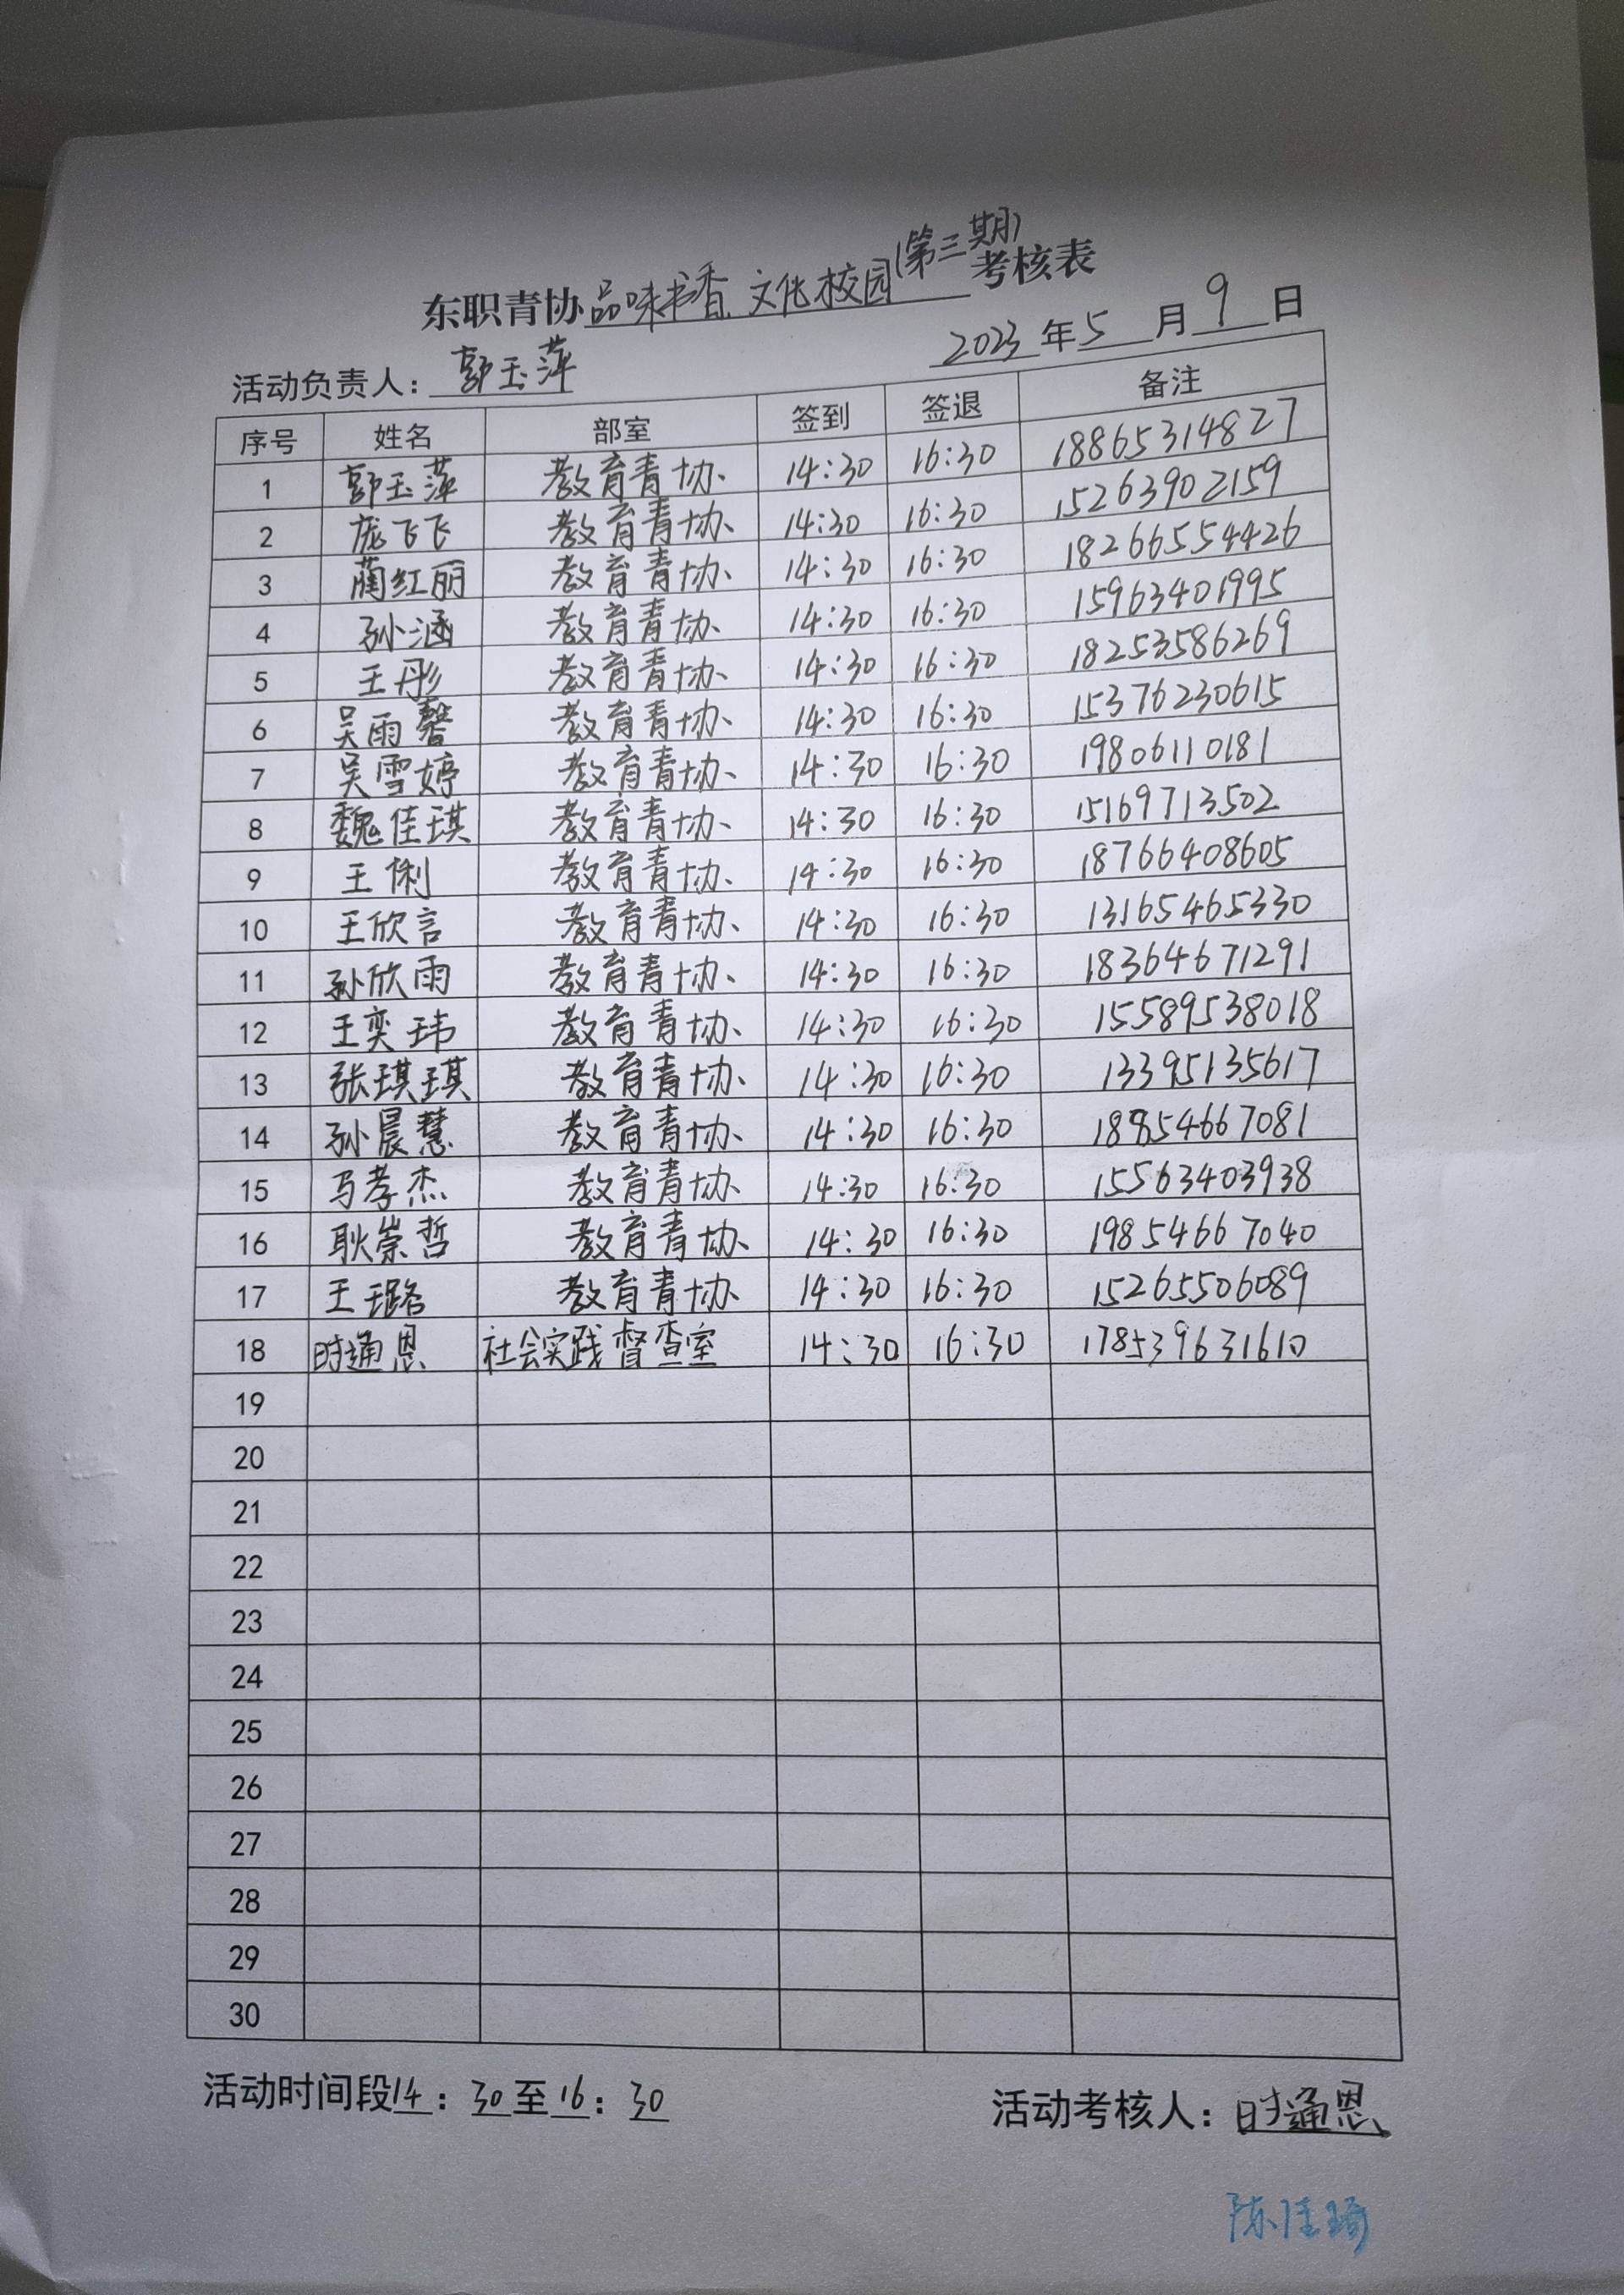 (第三期)
东职青协品味书香 文化校园考核表
活动负责人：郭玉萍 2023年5月9日
序号 姓名 部室 签到 签退 备注
1 郭玉萍 教育青协 14:30 16:30 18865314827
2 庞飞飞 教育青协 14:30 16:30 15263902159
3 蔺红丽 教育青协 14:30 16:30 18266554426
4 孙涵 教育青协 14:30 16:30 15963401995
5 王彤 教育青协 14:30 16:30 18253586269
6 吴雨馨 教育青协 14:30 16:30 15376230615
7 吴雪婷 教育青协 14:30 16:30 19806110181
8 魏佳琪 教育青协 14:30 16:30 15169713502
9 王俐 教育青协 14:30 16:30 18766408605
10 王欣言 教育青协 14:30 16:30 13165465330
11 孙欣雨 教育青协 14:30 16:30 18364671291
12 王奕玮 教育青协 14:30 16:30 15589538018
13 张琪琪 教育青协 14:30 16:30 13395135617
14 孙晨慧 教育青协 14:30 16:30 18854667081
15 马孝杰 教育青协 14:30 16:30 15563403938
16 耿崇哲 教育青协 14:30 16:30 19854667040
17 王璐 教育青协 14:30 16:30 15265506089
18 时通恩 社会实践督查室 14:30 16:30 178539631610
19
20
21
22
23
24
25
26
27
28
29
30
活动时间段14：30至16：30 活动考核人：时通恩
陈佳琦